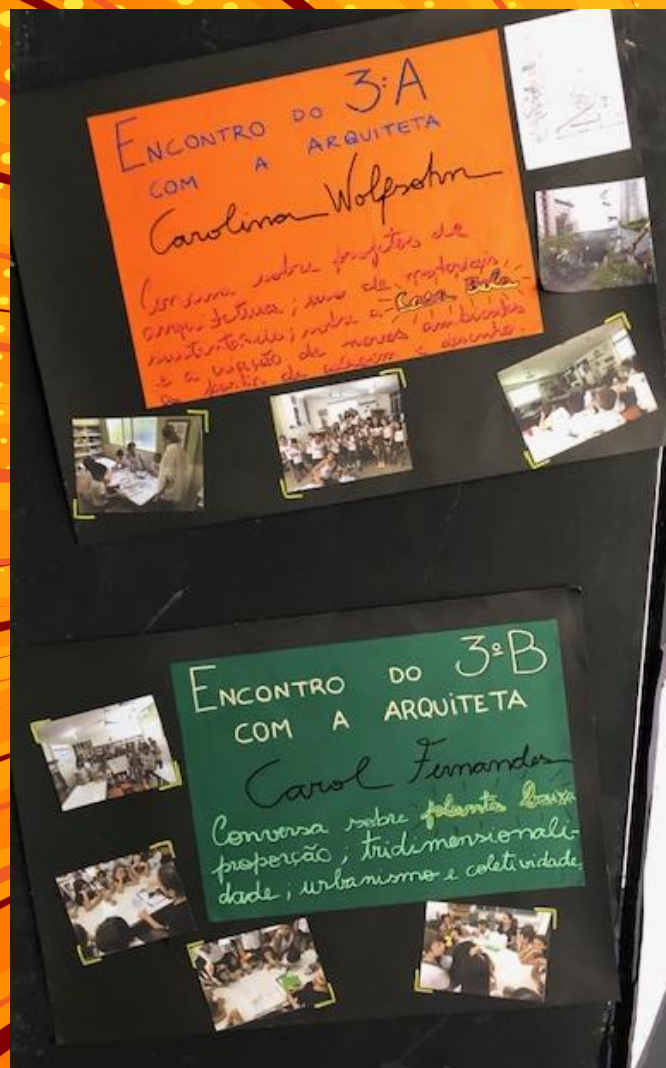 ENCONTRO DO 3ºA
COM A ARQUITETA
Carolina Wolfsohn
Conversa sobre projetos de
arquitetura; uso de materiais;
sustentáveis; sobre a Casa Bola
e a de novos ambientes
a partir de colagem e desenho.
ENCONTRO DO 3ºB
COM A ARQUITETA
Carol Fernandes
Conversa sobre planta baixa
proporção; tridimensionali-
dade; urbanismo e coletividade.